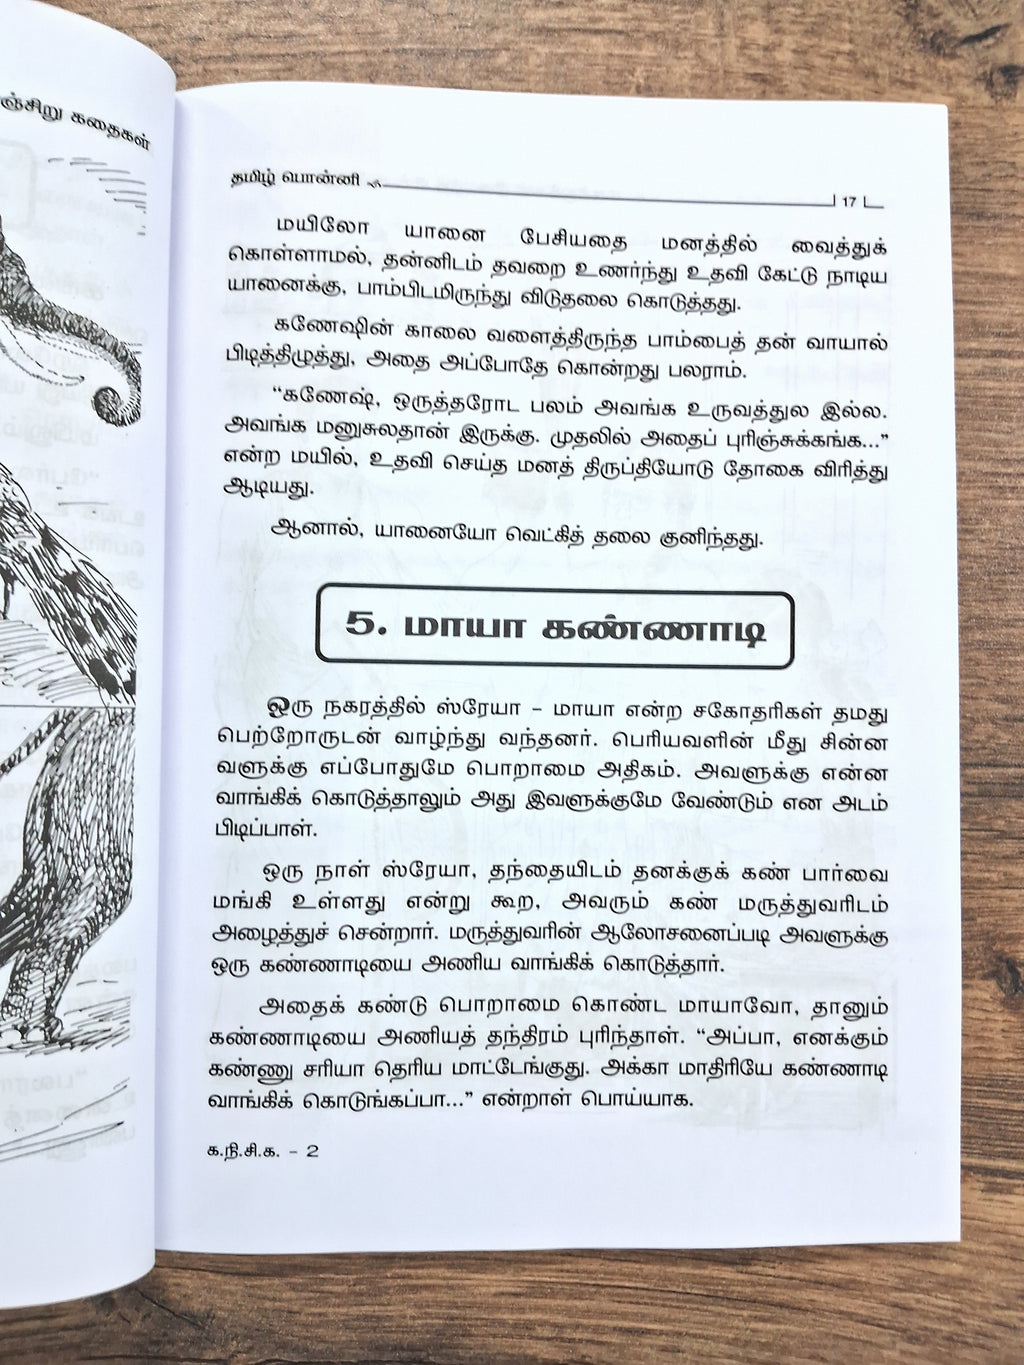 கதைகள்
தமிழ் பொன்னி
17
மயிலோ யானை பேசியதை மனத்தில் வைத்துக்
கொள்ளாமல், தன்னிடம் தவறை உணர்ந்து உதவி கேட்டு நாடிய
யானைக்கு, பாம்பிடமிருந்து விடுதலை கொடுத்தது.
கணேஷின் காலை வளைத்திருந்த பாம்பைத் தன் வாயால்
பிடித்திழுத்து, அதை அப்போதே கொன்றது பலராம்.
“கணேஷ், ஒருத்தரோட பலம் அவங்க உருவத்துல இல்ல.
அவங்க மனுசுலதான் இருக்கு. முதலில் அதைப் புரிஞ்சுக்கங்க...”
என்ற மயில், உதவி செய்த மனத் திருப்தியோடு தோகை விரித்து
ஆடியது.
ஆனால், யானையோ வெட்கித் தலை குனிந்தது.
5. மாயா கண்ணாடி
ஒரு நகரத்தில் ஸ்ரேயா – மாயா என்ற சகோதரிகள் தமது
பெற்றோருடன் வாழ்ந்து வந்தனர். பெரியவளின் மீது சின்ன
வளுக்கு எப்போதுமே பொறாமை அதிகம். அவளுக்கு என்ன
வாங்கிக் கொடுத்தாலும் அது இவளுக்குமே வேண்டும் என அடம்
பிடிப்பாள்.
ஒரு நாள் ஸ்ரேயா, தந்தையிடம் தனக்குக் கண் பார்வை
மங்கி உள்ளது என்று கூற, அவரும் கண் மருத்துவரிடம்
அழைத்துச் சென்றார். மருத்துவரின் ஆலோசனைப்படி அவளுக்கு
ஒரு கண்ணாடியை அணிய வாங்கிக் கொடுத்தார்.
அதைக் கண்டு பொறாமை கொண்ட மாயாவோ, தானும்
கண்ணாடியை அணியத் தந்திரம் புரிந்தாள். “அப்பா, எனக்கும்
கண்ணு சரியா தெரிய மாட்டேங்குது. அக்கா மாதிரியே கண்ணாடி
வாங்கிக் கொடுங்கப்பா...” என்றாள் பொய்யாக.
க.நி.சி.க. – 2